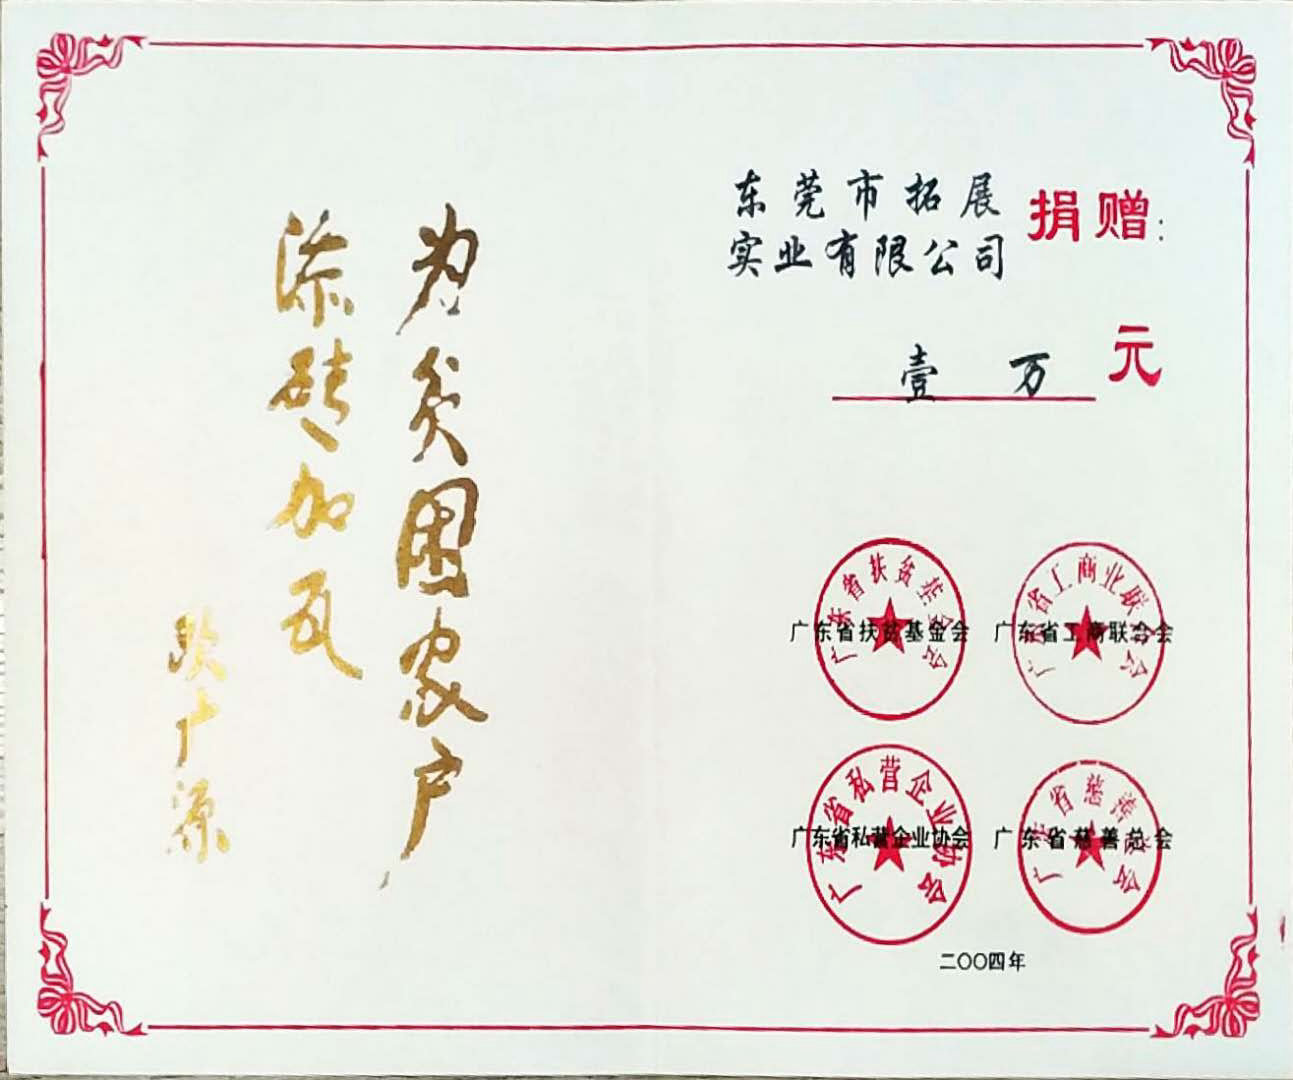 为贫困农户
添砖加瓦
欧广源
东莞市拓展
实业有限公司
捐赠:
壹万元
广东省扶贫基金会
广东省扶贫基金会
广东省工商业联合会
广东省工商联合会
广东省私营企业协会
广东省私营企业协会
广东省慈善总会
广东省慈善总会
二〇〇四年